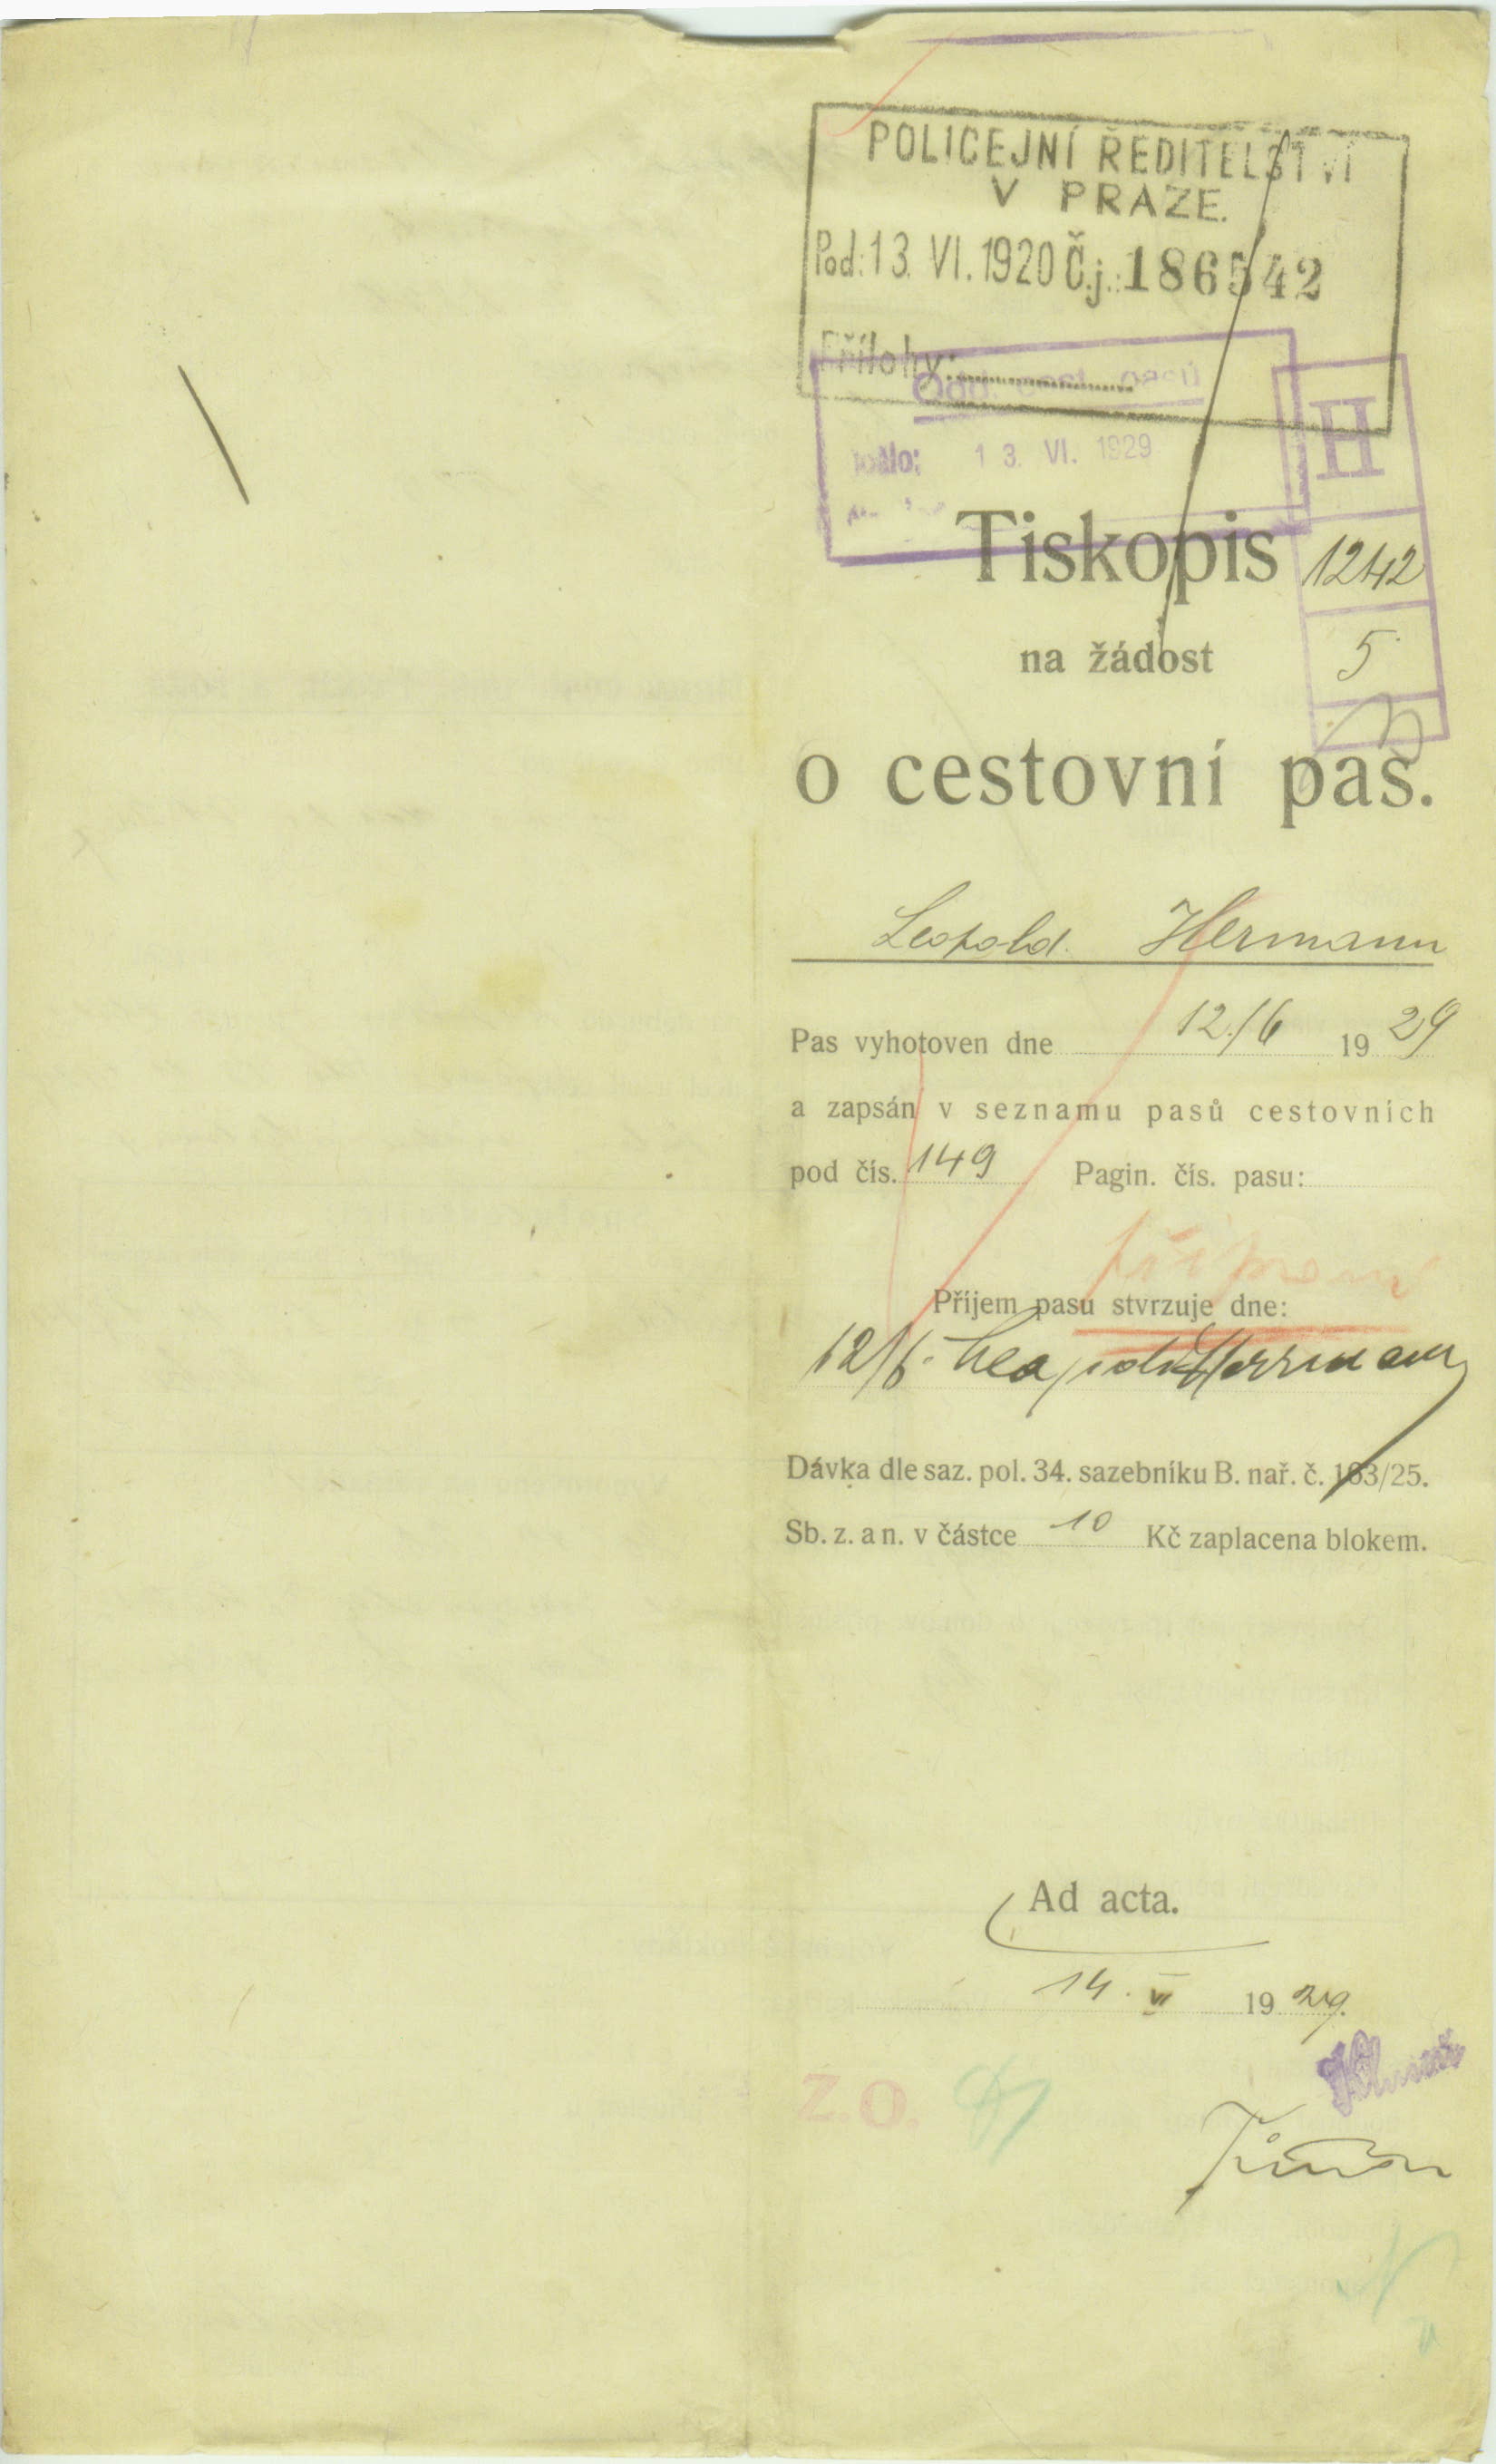 POLICEJNÍ ŘEDITELSTVÍ
V PRAZE.
Pod: 13. VI. 1920 Č.j.: 186542
Přílohy:
Odd. cest. pasů
Došlo: 13. VI. 1929
H
1242
5
Tiskopis
na žádost
o cestovní pas.
Leopold Hermann
Pas vyhotoven dne 12./6 1929
a zapsán v seznamu pasů cestovních
pod čís. 149 Pagin. čís. pasu:
Příjem pasu stvrzuje dne:
12/6. Leopold Herrmann
Dávka dle saz. pol. 34. sazebníku B. nař. č. 163/25.
Sb. z. a n. v částce 10 Kč zaplacena blokem.
Ad acta.
14. VI 1929.
Z.O.